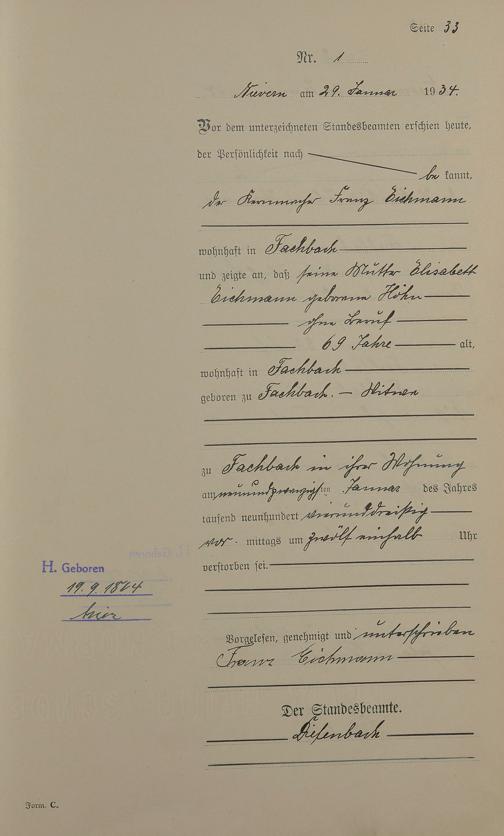 Seite 33
Nr. 1
Nievern am 29. Januar 1934.
Vor dem unterzeichneten Standesbeamten erschien heute,
der Persönlichkeit nach
be kannt,
der Kernmacher Franz Eichmann
wohnhaft in Fachbach
und zeigte an, daß seine Mutter Elisabeth
Eichmann geborene Höhn
ohne Beruf
69 Jahre alt,
wohnhaft in Fachbach
geboren zu Fachbach. – Witwe
zu Fachbach in ihrer Wohnung
am neunundzwanzigsten Januar des Jahres
tausend neunhundert vierunddreißig
vor mittags um zwölf einhalb Uhr
verstorben sei.
H. Geboren
19.9.1864
hier
Vorgelesen, genehmigt und unterschrieben
Franz Eichmann
Der Standesbeamte.
Diefenbach
Form. C.